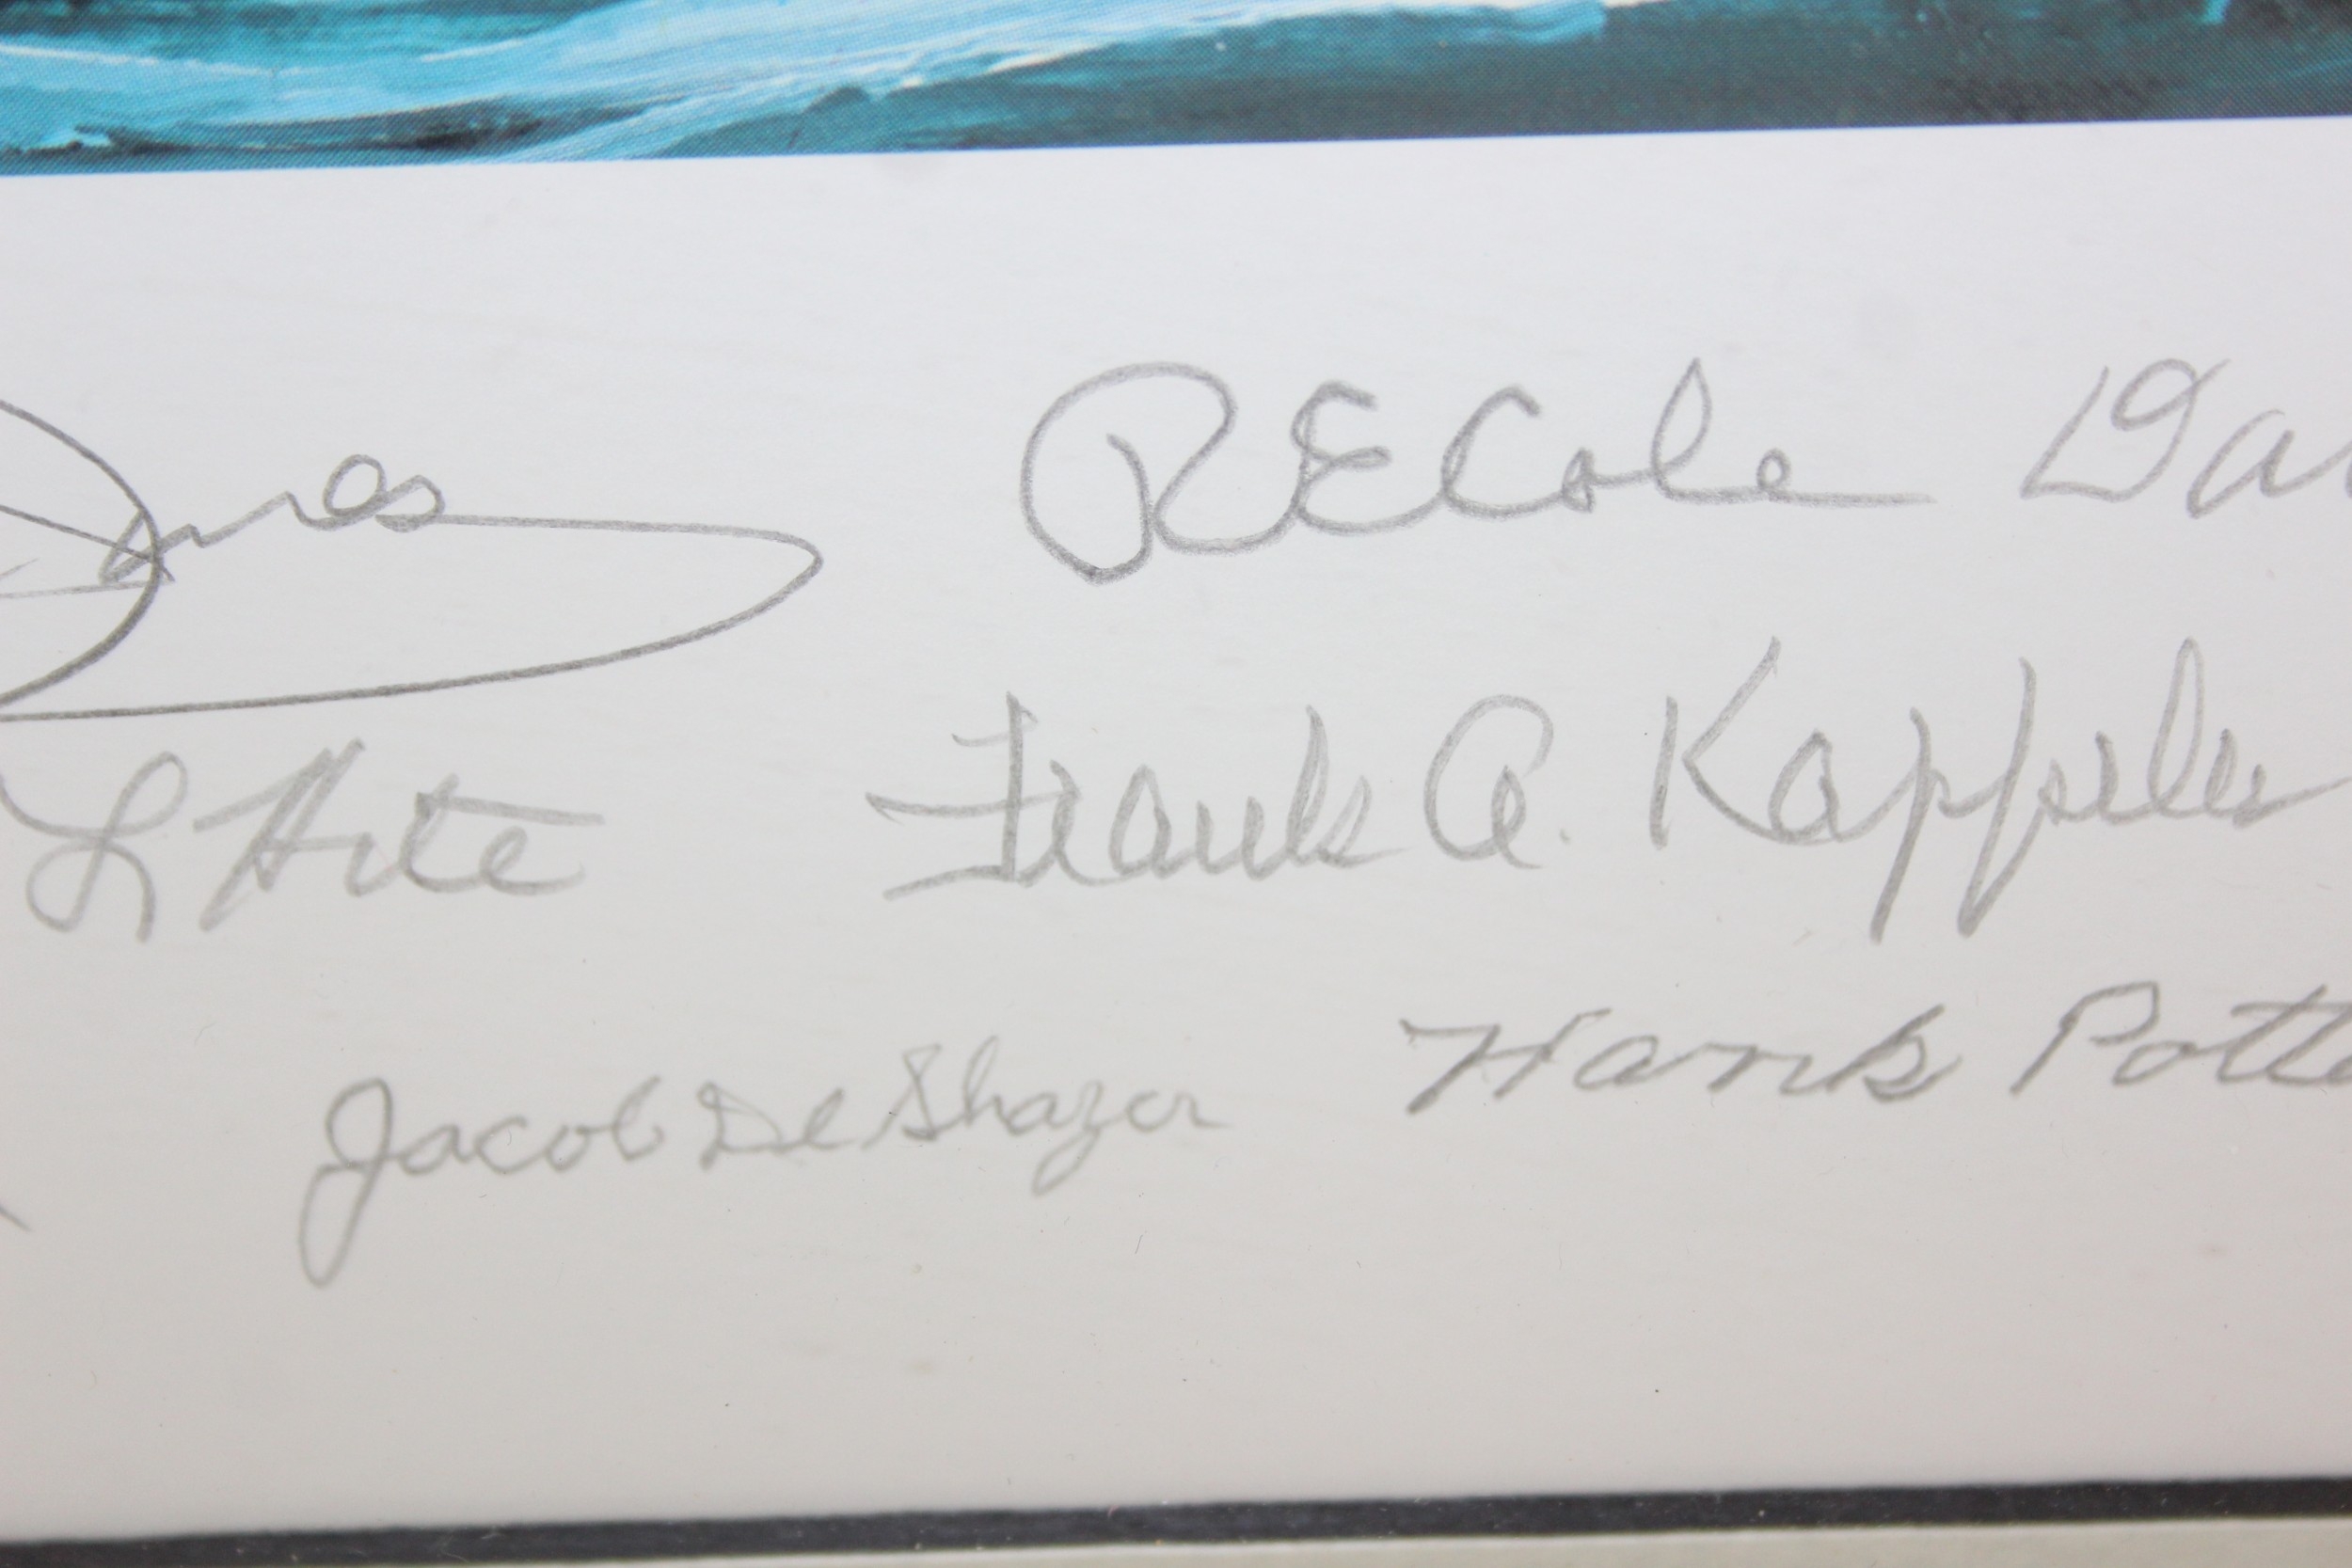 Jones RECole Da
L Hite Frank A. Kappeler
Jacob DeShazer Hank Potte